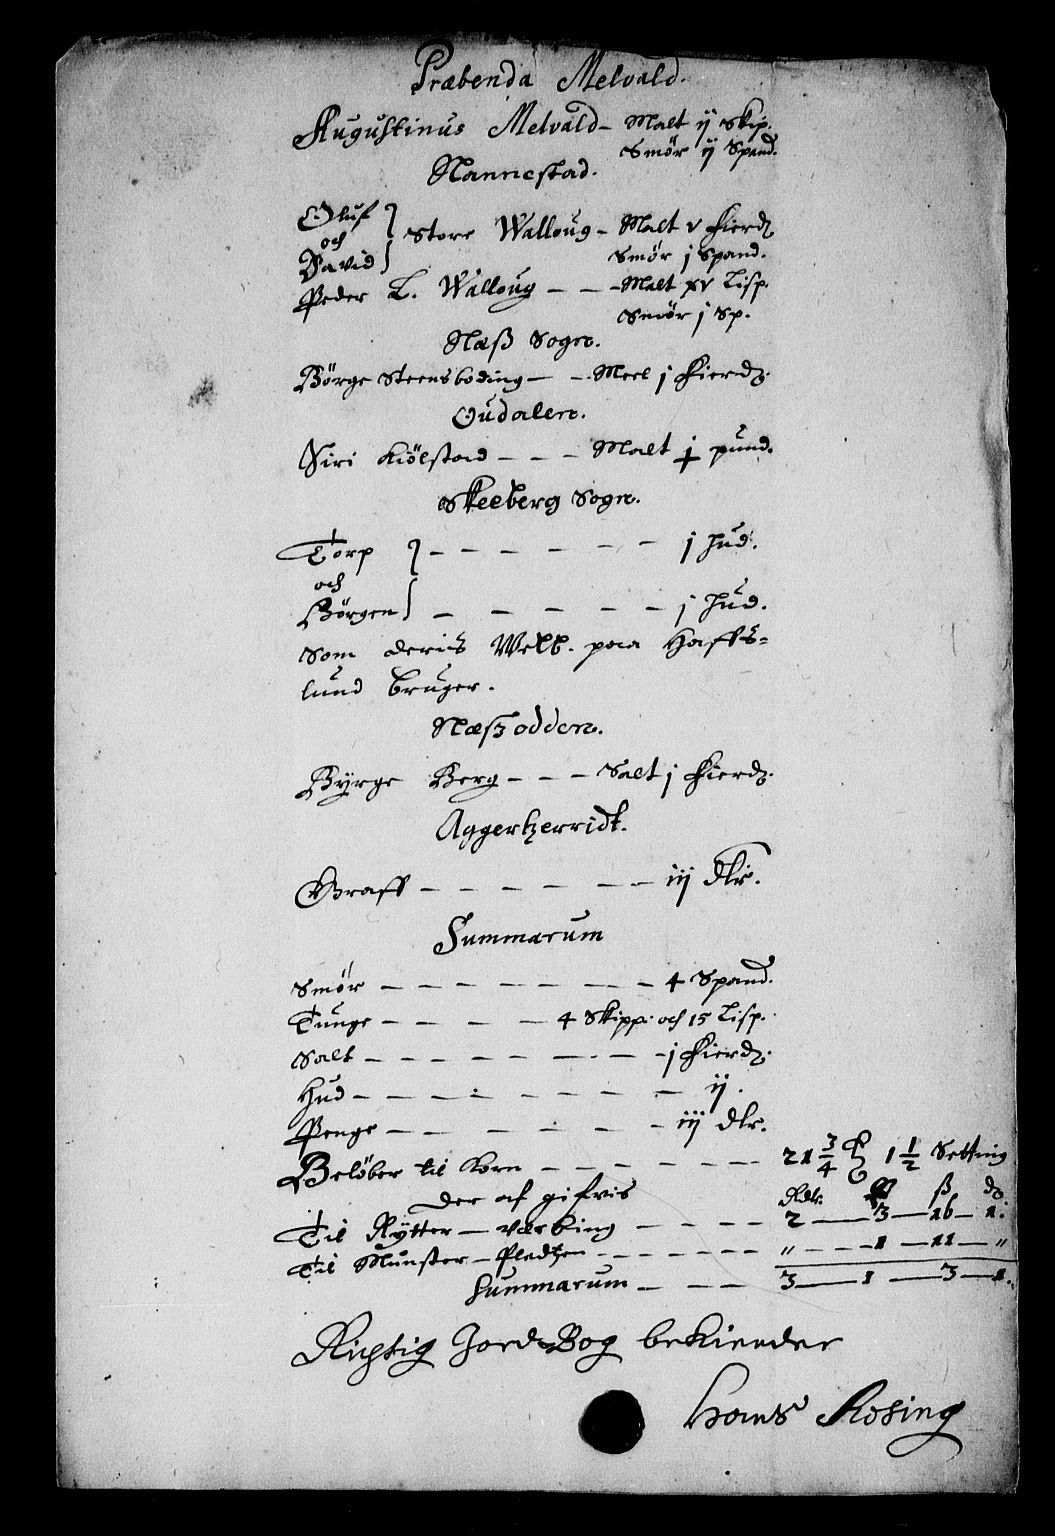 Præbenda Melvald.
Augustinus Melvald – Malt ij Skip.
Smör ij Spand.
Nannestad.
Oluf
och
David } Store Walloug – Malt v fierd.
Smör j Spand.
Peder L. Walloug – – – Malt xv Lisp.
Smör j Sp.
Næß Sogn.
Börge Steensboding – – Meel j fierd.
Oudalen.
Siri Kiölstad – – – Malt j pund.
Skeeberg Sogn.
Torp } – – – – – – j hud.
och
Börgen } – – – – – – j hud.
Som deris Welb. paa Haffs=
lund bruger.
Næßodden.
Byrge Berg – – – Salt j fierd.
Aggerherridt.
Graff – – – – – – iij dlr.
Summarum
Smör – – – – – – – 4 Spand.
Tunge – – – – – 4 Skipp: och 15 Lisp.
Salt – – – – – – – – j fierd.
Hud – – – – – – – – – ij.
Penge – – – – – – – iij dlr.
Belöber til Korn – – – – – – 21 3/4 1 1/2 Setting
Der af gifvis Rdlr. ß
Til Rytter – værbing – – – – 2 — 3 — 16 — 1.
Til Munster – Pladsen – – – – – – „ — 1 — 11 — „
Summarum – – – 3 — 1 — 3 — 1.
Rigtig Jorde Bog bekiender
Hans Rosing